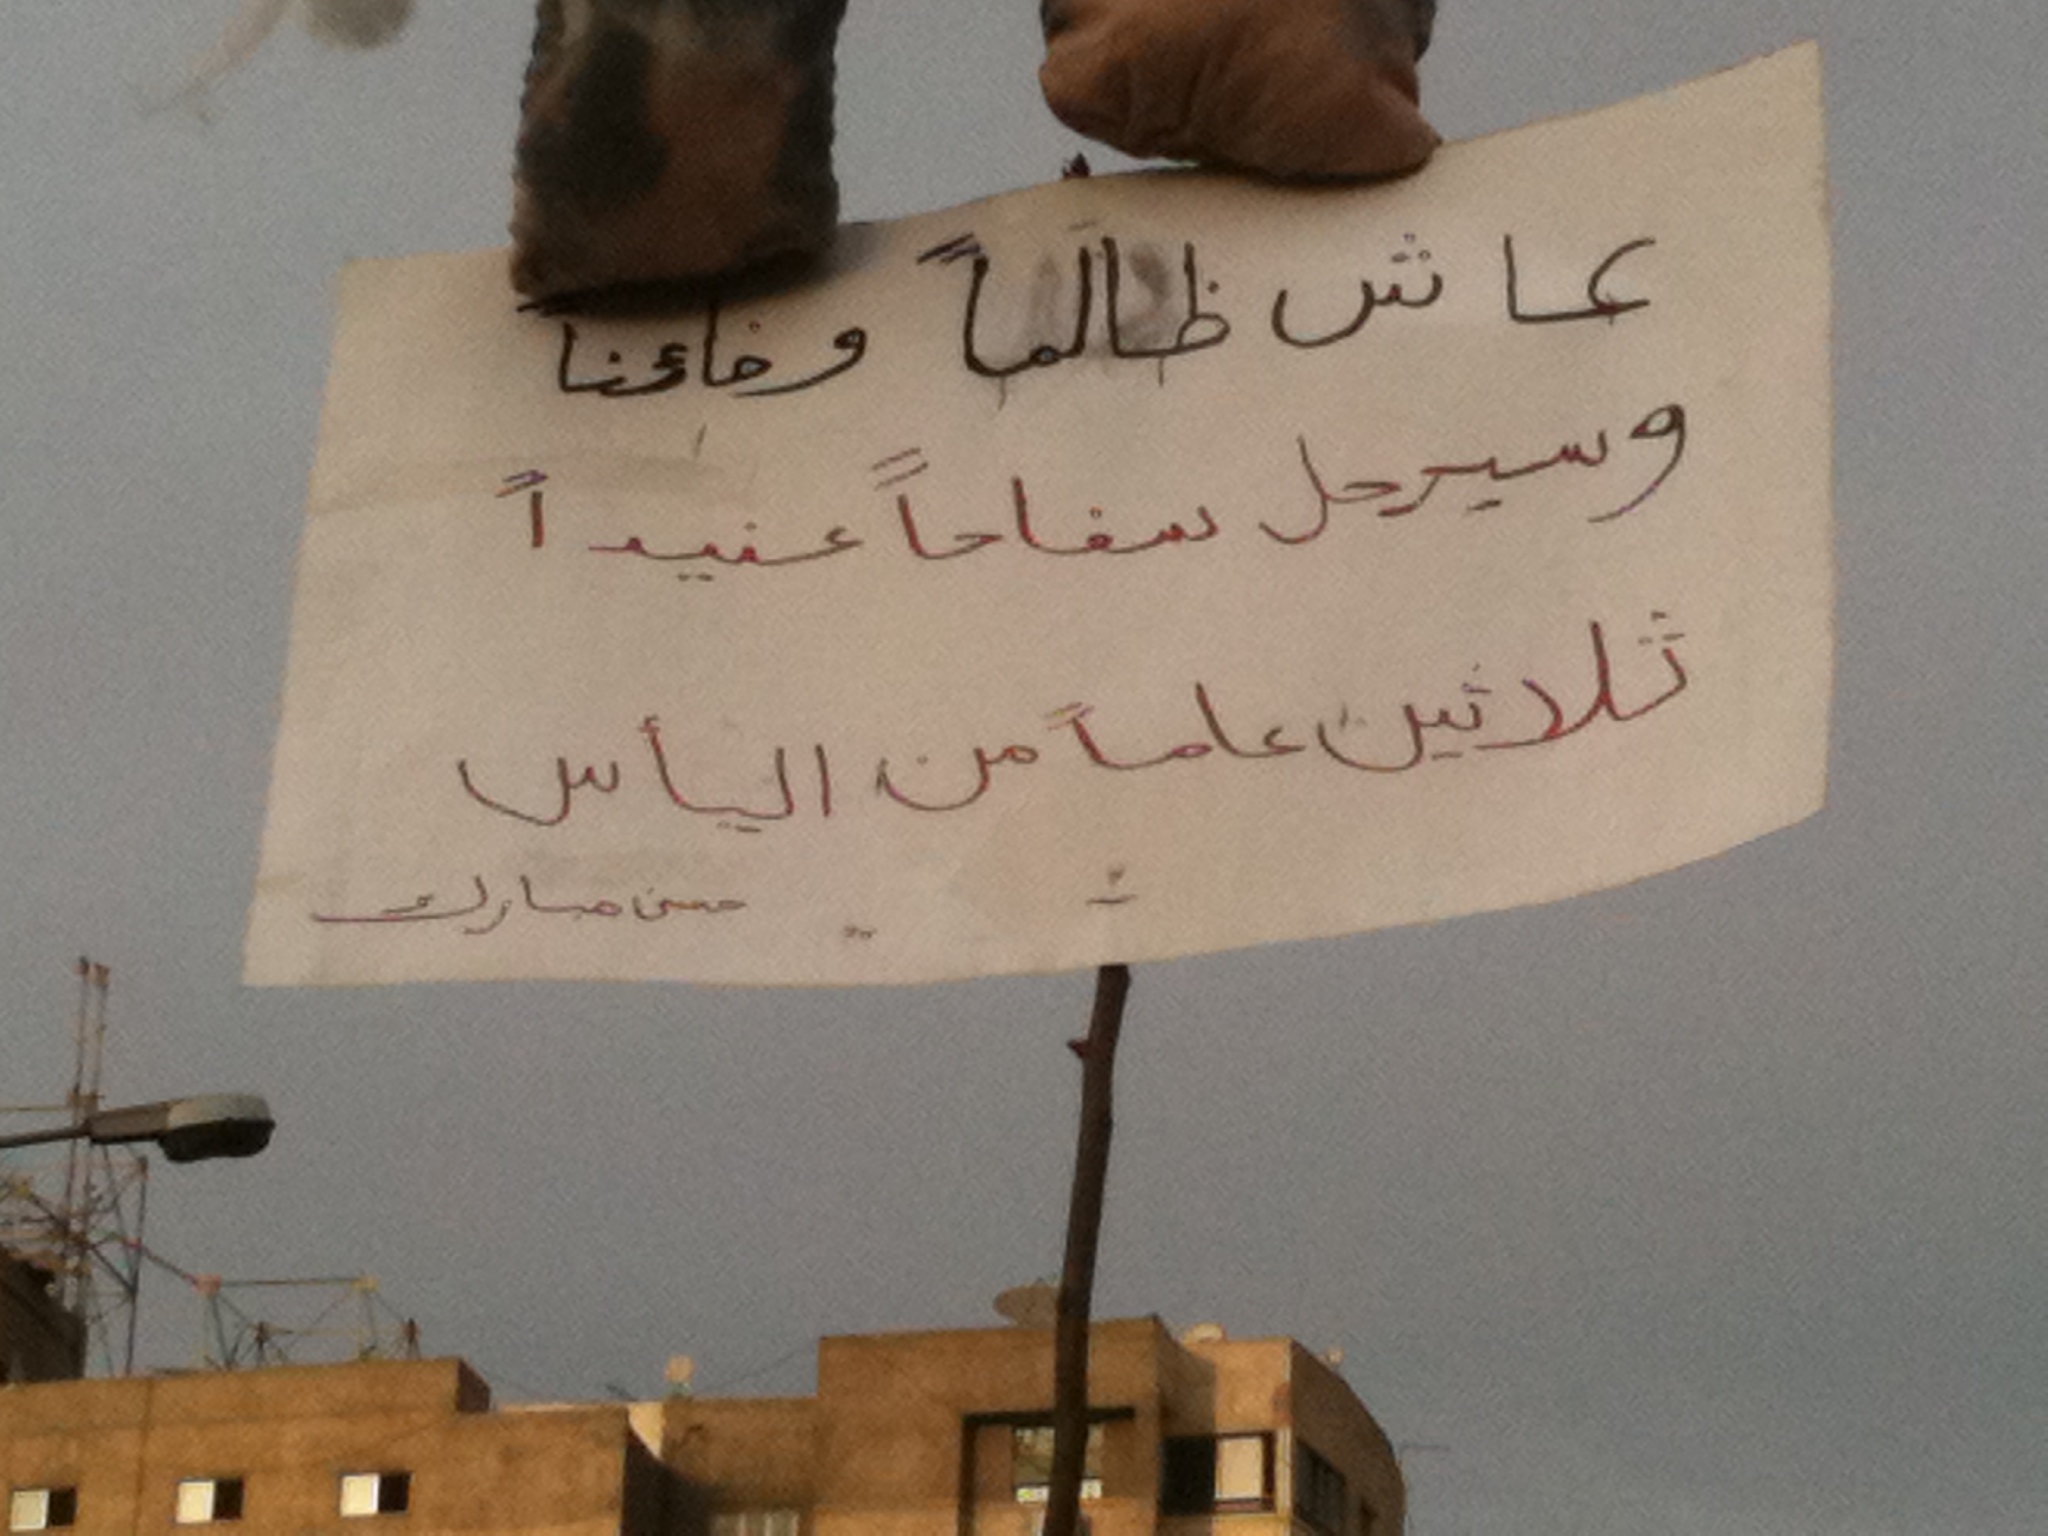 عاش ظالماً وخائناً
وسيرحل سفاحاً عنيداً
ثلاثين عاماً من اليأس
حسن مبارك